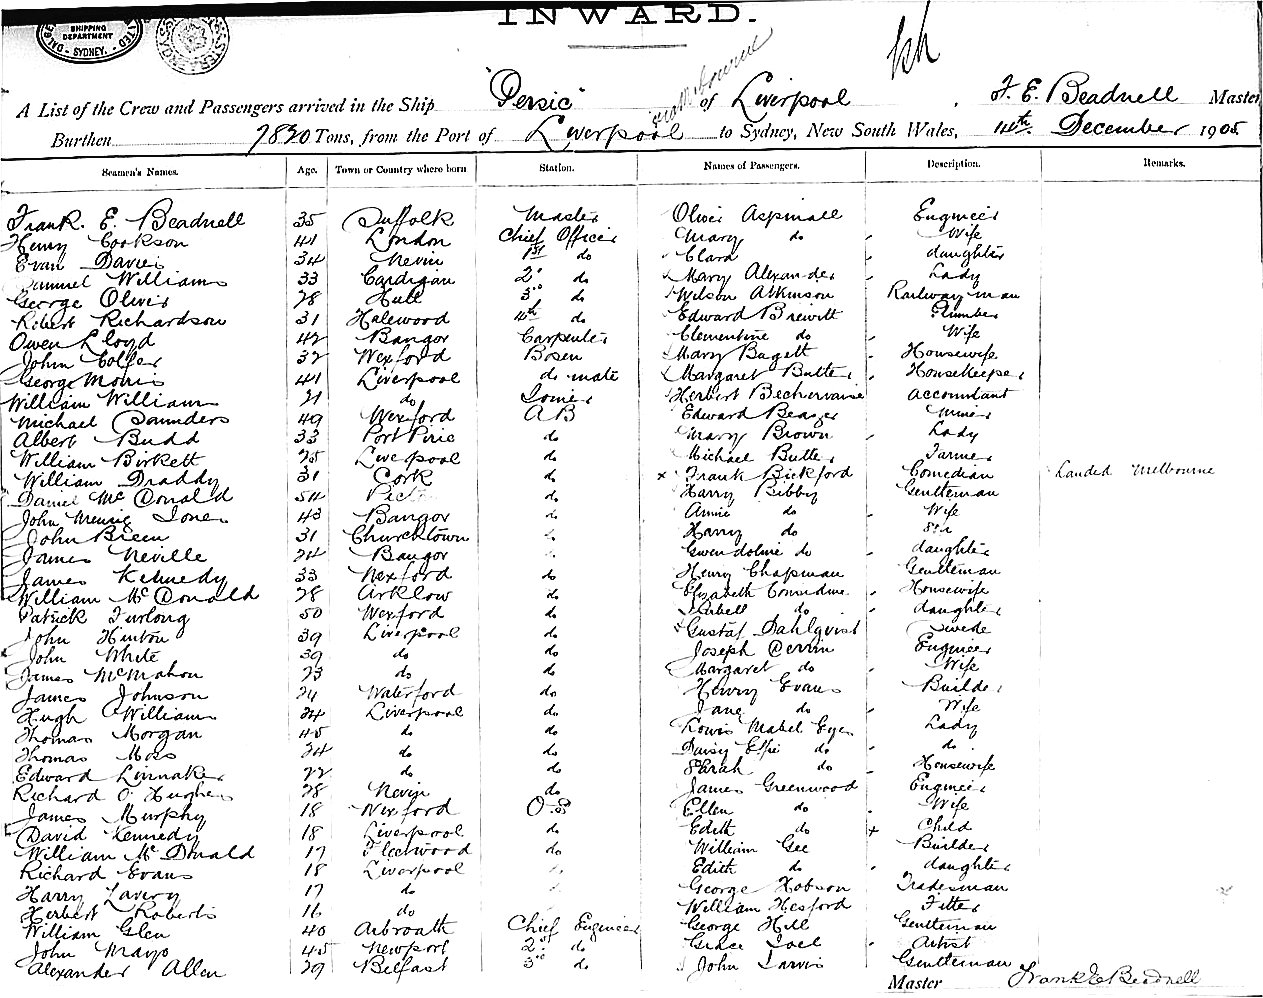 INWARD.
SHIPPING DEPARTMENT SYDNEY.
via Melbourne
A List of the Crew and Passengers arrived in the Ship "Persic" of Liverpool, F. E. Beadnell Master
Burthen 7830 Tons, from the Port of Liverpool to Sydney, New South Wales, 14th December 1905
Seamen's Names. Age. Town or Country where born Station. Names of Passengers. Description. Remarks.
Frank. E. Beadnell 35 Suffolk Master Oliver Aspinall Engineer
Henry Cookson 41 London Chief Officer Mary do Wife
Evan Davies 34 Nevin 1st do Clara daughter
Samuel Williams 33 Cardigan 2nd do Mary Alexander Lady
George Oliver 28 Hull 3rd do Wilson Atkinson Railwayman
Robert Richardson 31 Halewood 4th do Edward Brewitt Plumber
Owen Lloyd 42 Bangor Carpenter Clementine do Wife
John Colfer 32 Wexford Bosen Mary Bagett Housewife
George Morris 41 Liverpool do mate Margaret Butler Housekeeper
William Williams 21 do Herbert Bechervaise accountant
Michael Saunders 49 Wexford AB Edward Miner
Albert Budd 33 Port Pirie do Mary Brown Lady
William Birkett 25 Liverpool do Michael Butler Farmer
William Draddy 31 Cork do x Frank Bickford Comedian Landed Melbourne
Daniel McDonald 54 do Harry Bibby Gentleman
John Meurig Jones 43 Bangor do Annie do Wife
John Breen 31 Churchtown do Harry do Son
James Neville 24 Bangor do Gwendoline do daughter
James Kennedy 33 Wexford do Henry Chapman Gentleman
William McDonald 28 Arklow do Elizabeth Considine Housewife
Patrick Furlong 50 Wexford do Isabell do daughter
John Hinton 39 Liverpool do Gustaf Dahlqvist Swede
John White 39 do do Joseph Engineer
James McMahon 23 do do Margaret do Wife
James Johnson 24 Waterford do Henry Evans Builder
Hugh Williams 24 Liverpool do Jane do Wife
Thomas Morgan 45 do do Lowis Mabel Eyes Lady
Thomas Moss 24 do do Daisy Elsie do do
Edward Linnaker 22 do do Sarah do Housewife
Richard O. Hughes 28 Nevin do James Greenwood Engineer
James Murphy 18 Wexford O.S Ellen do Wife
David Kennedy 18 Liverpool do Edith do Child
William McDonald 17 Fleetwood do William Gee Builder
Richard Evans 18 Liverpool Edith do daughter
Harry Lavery 17 do George Hobson Tradesman
Herbert Roberts 16 do William Hesford Fitter
William Glen 40 Arbroath Chief Engineer George Hill Gentleman
John Mayo 45 Newport 2nd do Grace Joel Artist
Alexander Allen 29 Belfast 3rd do John Jarvis Gentleman
Master Frank E Beadnell